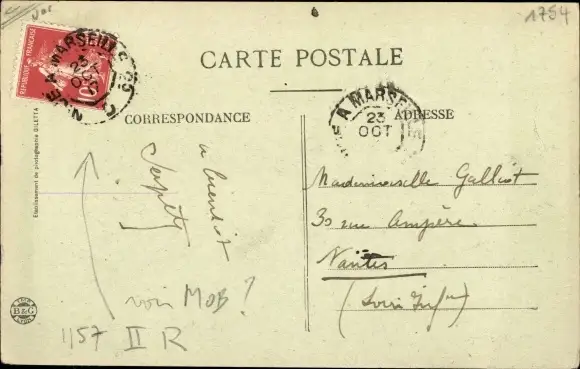 1754
REPUBLIQUE FRANÇAISE
10
A MARSEILLE
23
OCT
CARTE POSTALE
CORRESPONDANCE
A MARSEILLE
23
OCT
ADRESSE
a bientôt
Mademoiselle Galliot
30 rue Ampère
Nantes
(Loire Infre)
voir MOB?
1157 II R
Etablissement de photographie GILETTA
B&G
LYON